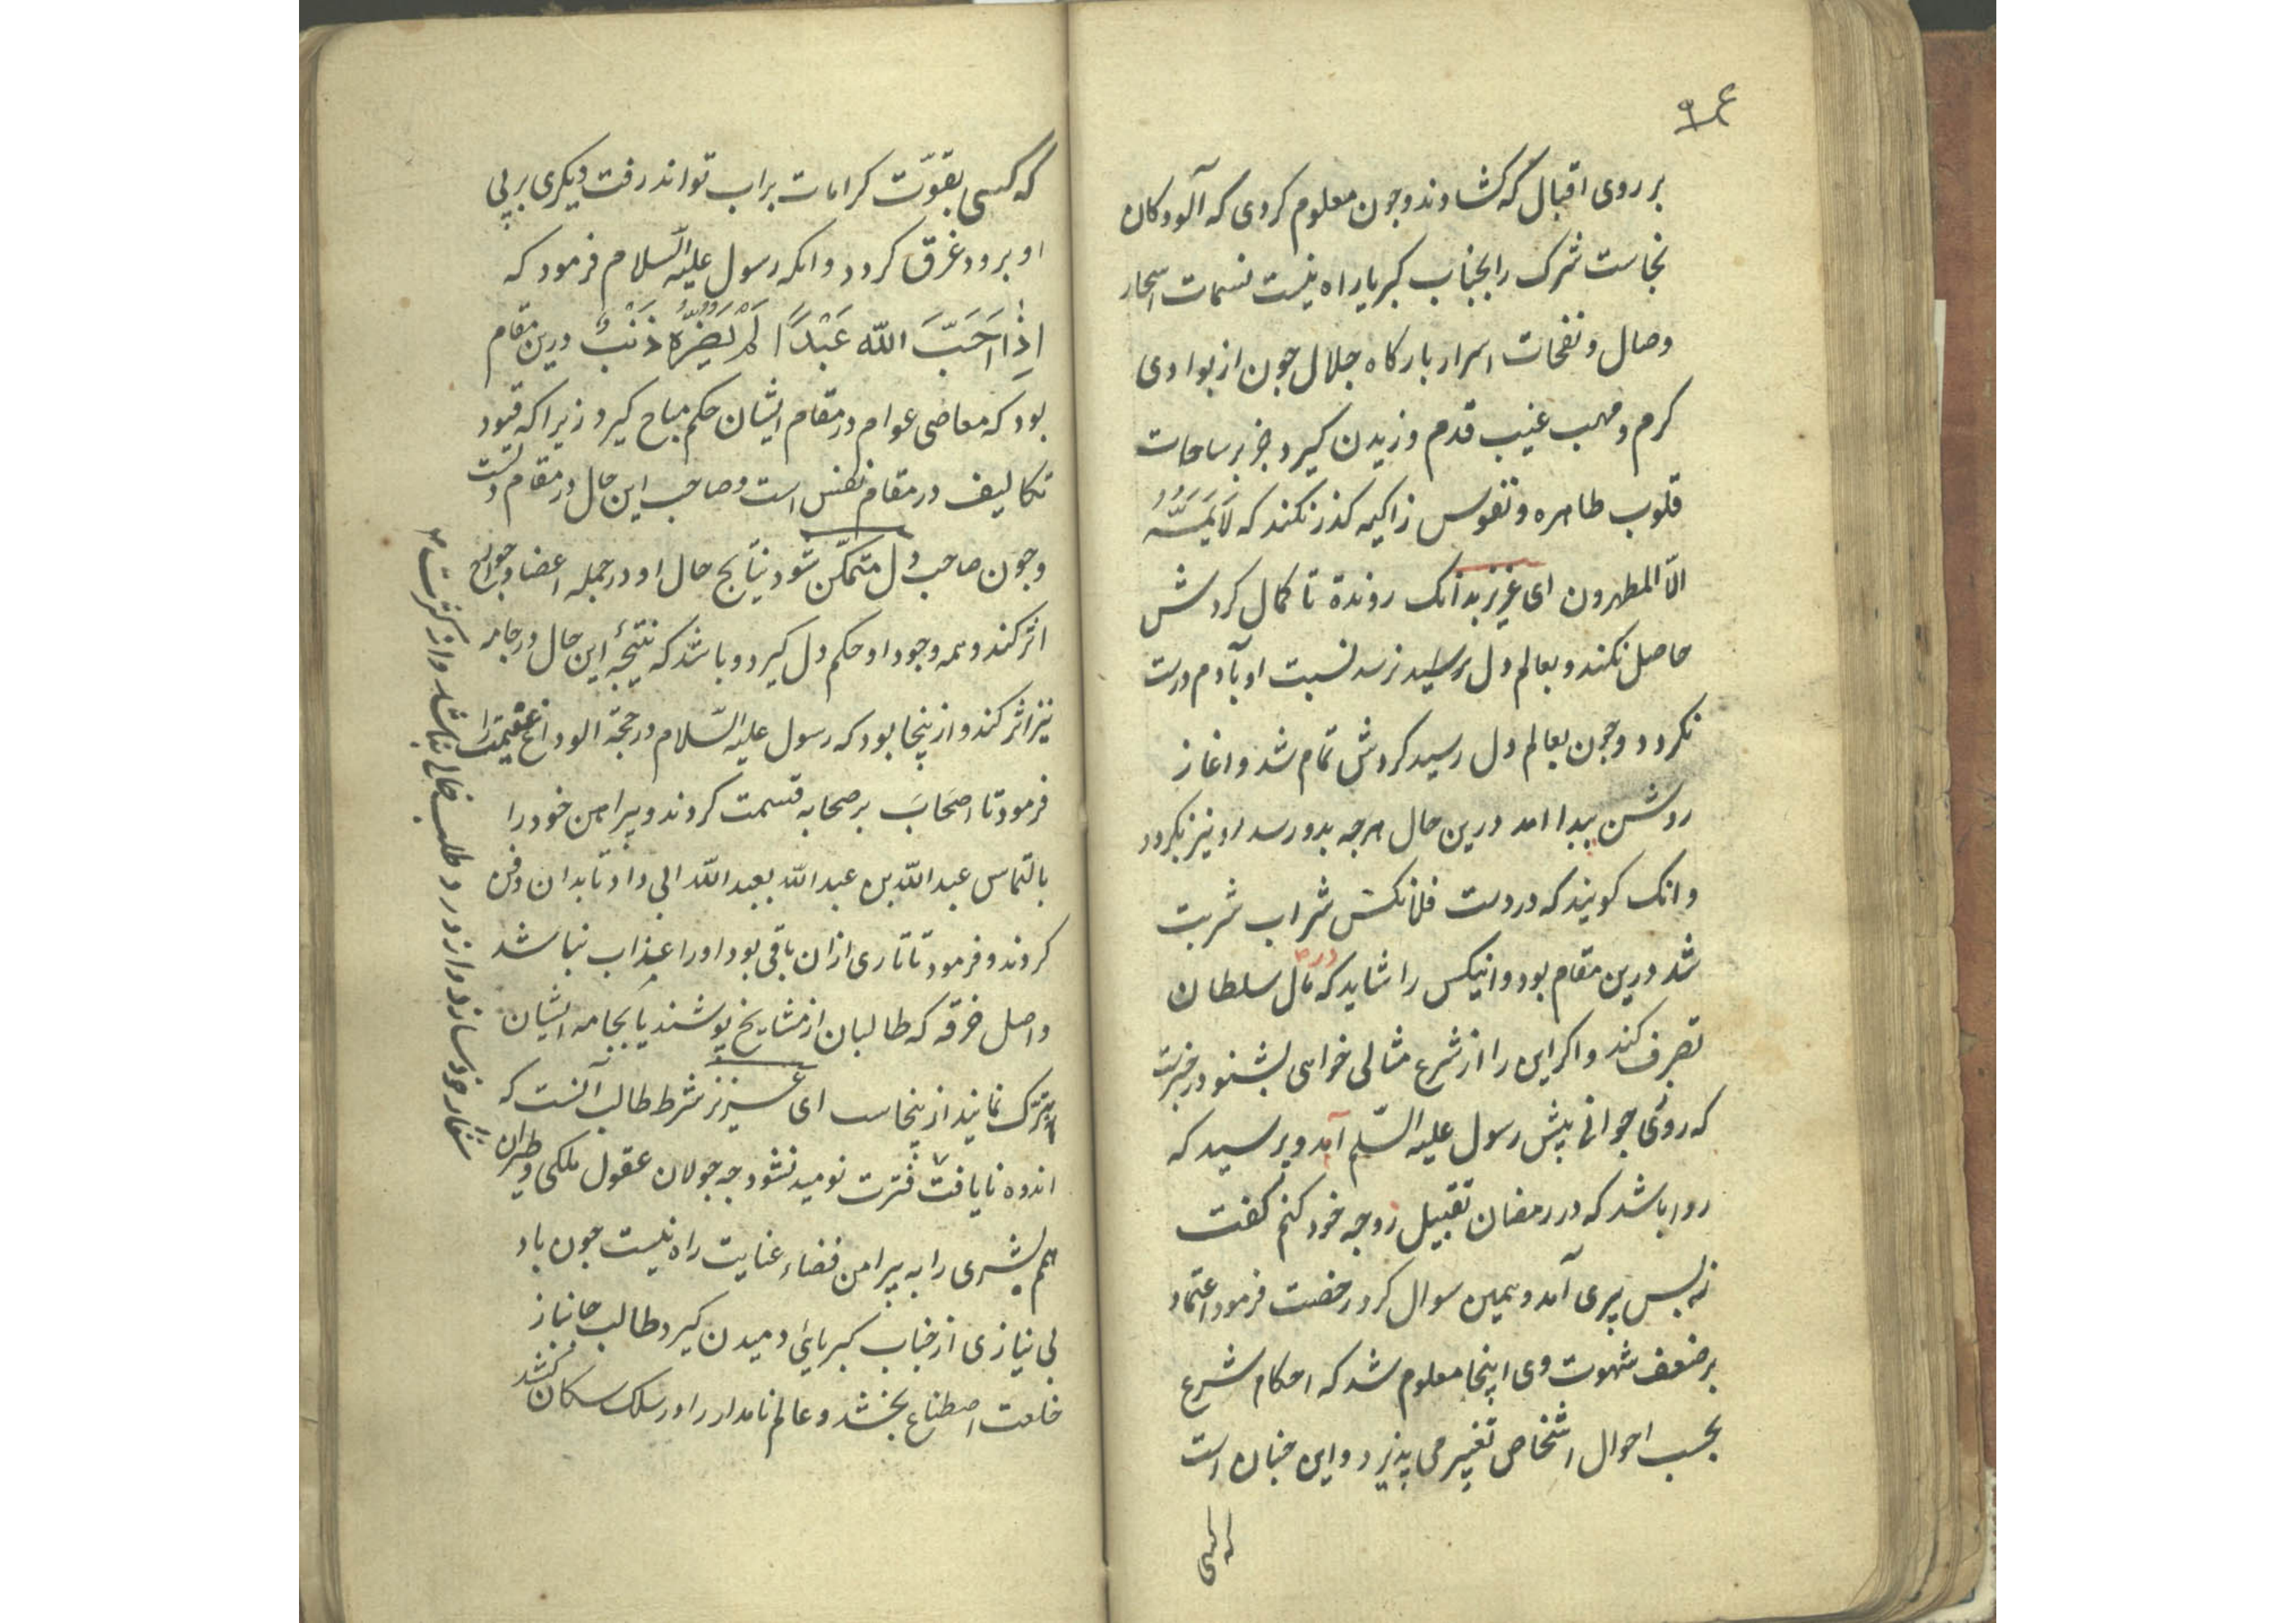 ۹۴
بر روی اقبال که کشاوند وجون معلوم کردی که آلودکان
نجاست شرک را بجناب کبریا راه نیست نسمات اسحار
وصال و نفحات اسرار بارکاه جلال جون از بوادی
کرم و مهب غیب قدم وزیدن کیرد جز بر ساحات
قلوب طاهره و نفوس زاکیه کذر نکند که لَا یَمَسُّهُ
الّا المطهرون ای عزیز بدانک رونده تا کمال کردش
حاصل نکند و بعالم دل نرسد نسبت او بآدم درست
نکردد وجون بعالم دل رسید کردش تمام شد و اغاز
روشن پیدا امد درین حال هرجه بدو رسد او نیز بکردد
و انک کویند که در دست فلانکس شراب شربت
شد درین مقام بود و انیکس را شاید که در مال سلطان
تصرف کند و اکر این را از شرع مثالی خواهی بشنو در خبرست
که روزی جوانی پیش رسول علیه السّلم آمد و پرسید که
روا باشد که در رمضان تقبیل زوجه خود کنم کفت
نه پس پیری آمد و همین سوال کرد رخصت فرمود اعتماد
بر ضعف شهوت وی اینجا معلوم شد که احکام شرع
بحسب احوال اشخاص تغییر می پذیرد و این جنان است
که کسی
که کسی بقوّت کرامات بر اب تواند رفت دیکری بر پی
او برود غرق کردد و انکه رسول علیه السلام فرمود که
اِذَا اَحَبَّ اللّه عَبْدًا لَمْ یَضُرّهُ ذَنْبٌ درین مقام
بود که معاصی عوام در مقام ایشان حکم مباح کیرد زیرا که قیود
تکالیف در مقام نفس است و صاحب این حال در مقام دلست
وجون صاحب دل متمکّن شود نتایج حال او در جمله اعضا و جوارح
اثر کند و همه وجود او حکم دل کیرد و باشد که نتیجۀ این حال در جامه
نیز اثر کند و ازینجا بود که رسول علیه السّلام در حجّة الوداع
فرمود تا اصحاب بر صحابه قسمت کردند و پیراهن خود را
بالتماس عبد اللّه بن عبد اللّه بعبد اللّه ابی داد تا بدان دفن
کردند و فرمود تا تاری از ان باقی بود او را عذاب نباشد
و اصل خرقه که طالبان از مشایخ پوشند یا بجامه ایشان
تبرّک نمایند ازینجاست ای عزیز شرط طالب آنست که
اندوه نایافت فترت نومید نشود جه جولان عقول ملکی و طیران
همم بشری را به پیرامن فضاء عنایت راه نیست جون باد
بی نیازی از جناب کبریائی دمیدن کیرد طالب جانباز
خلعت اصطناع بخشد و عالم نامدار را در سلک سکان کشد
شعار خود سازد و از درد طلب خالی نباشد و از کثرت